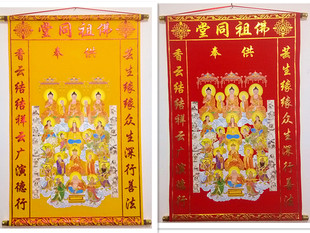 佛祖同堂
供奉
芸生缘缘众生深行善法
香云结结祥云广演德行
佛祖同堂
供奉
芸生缘缘众生深行善法
香云结结祥云广演德行